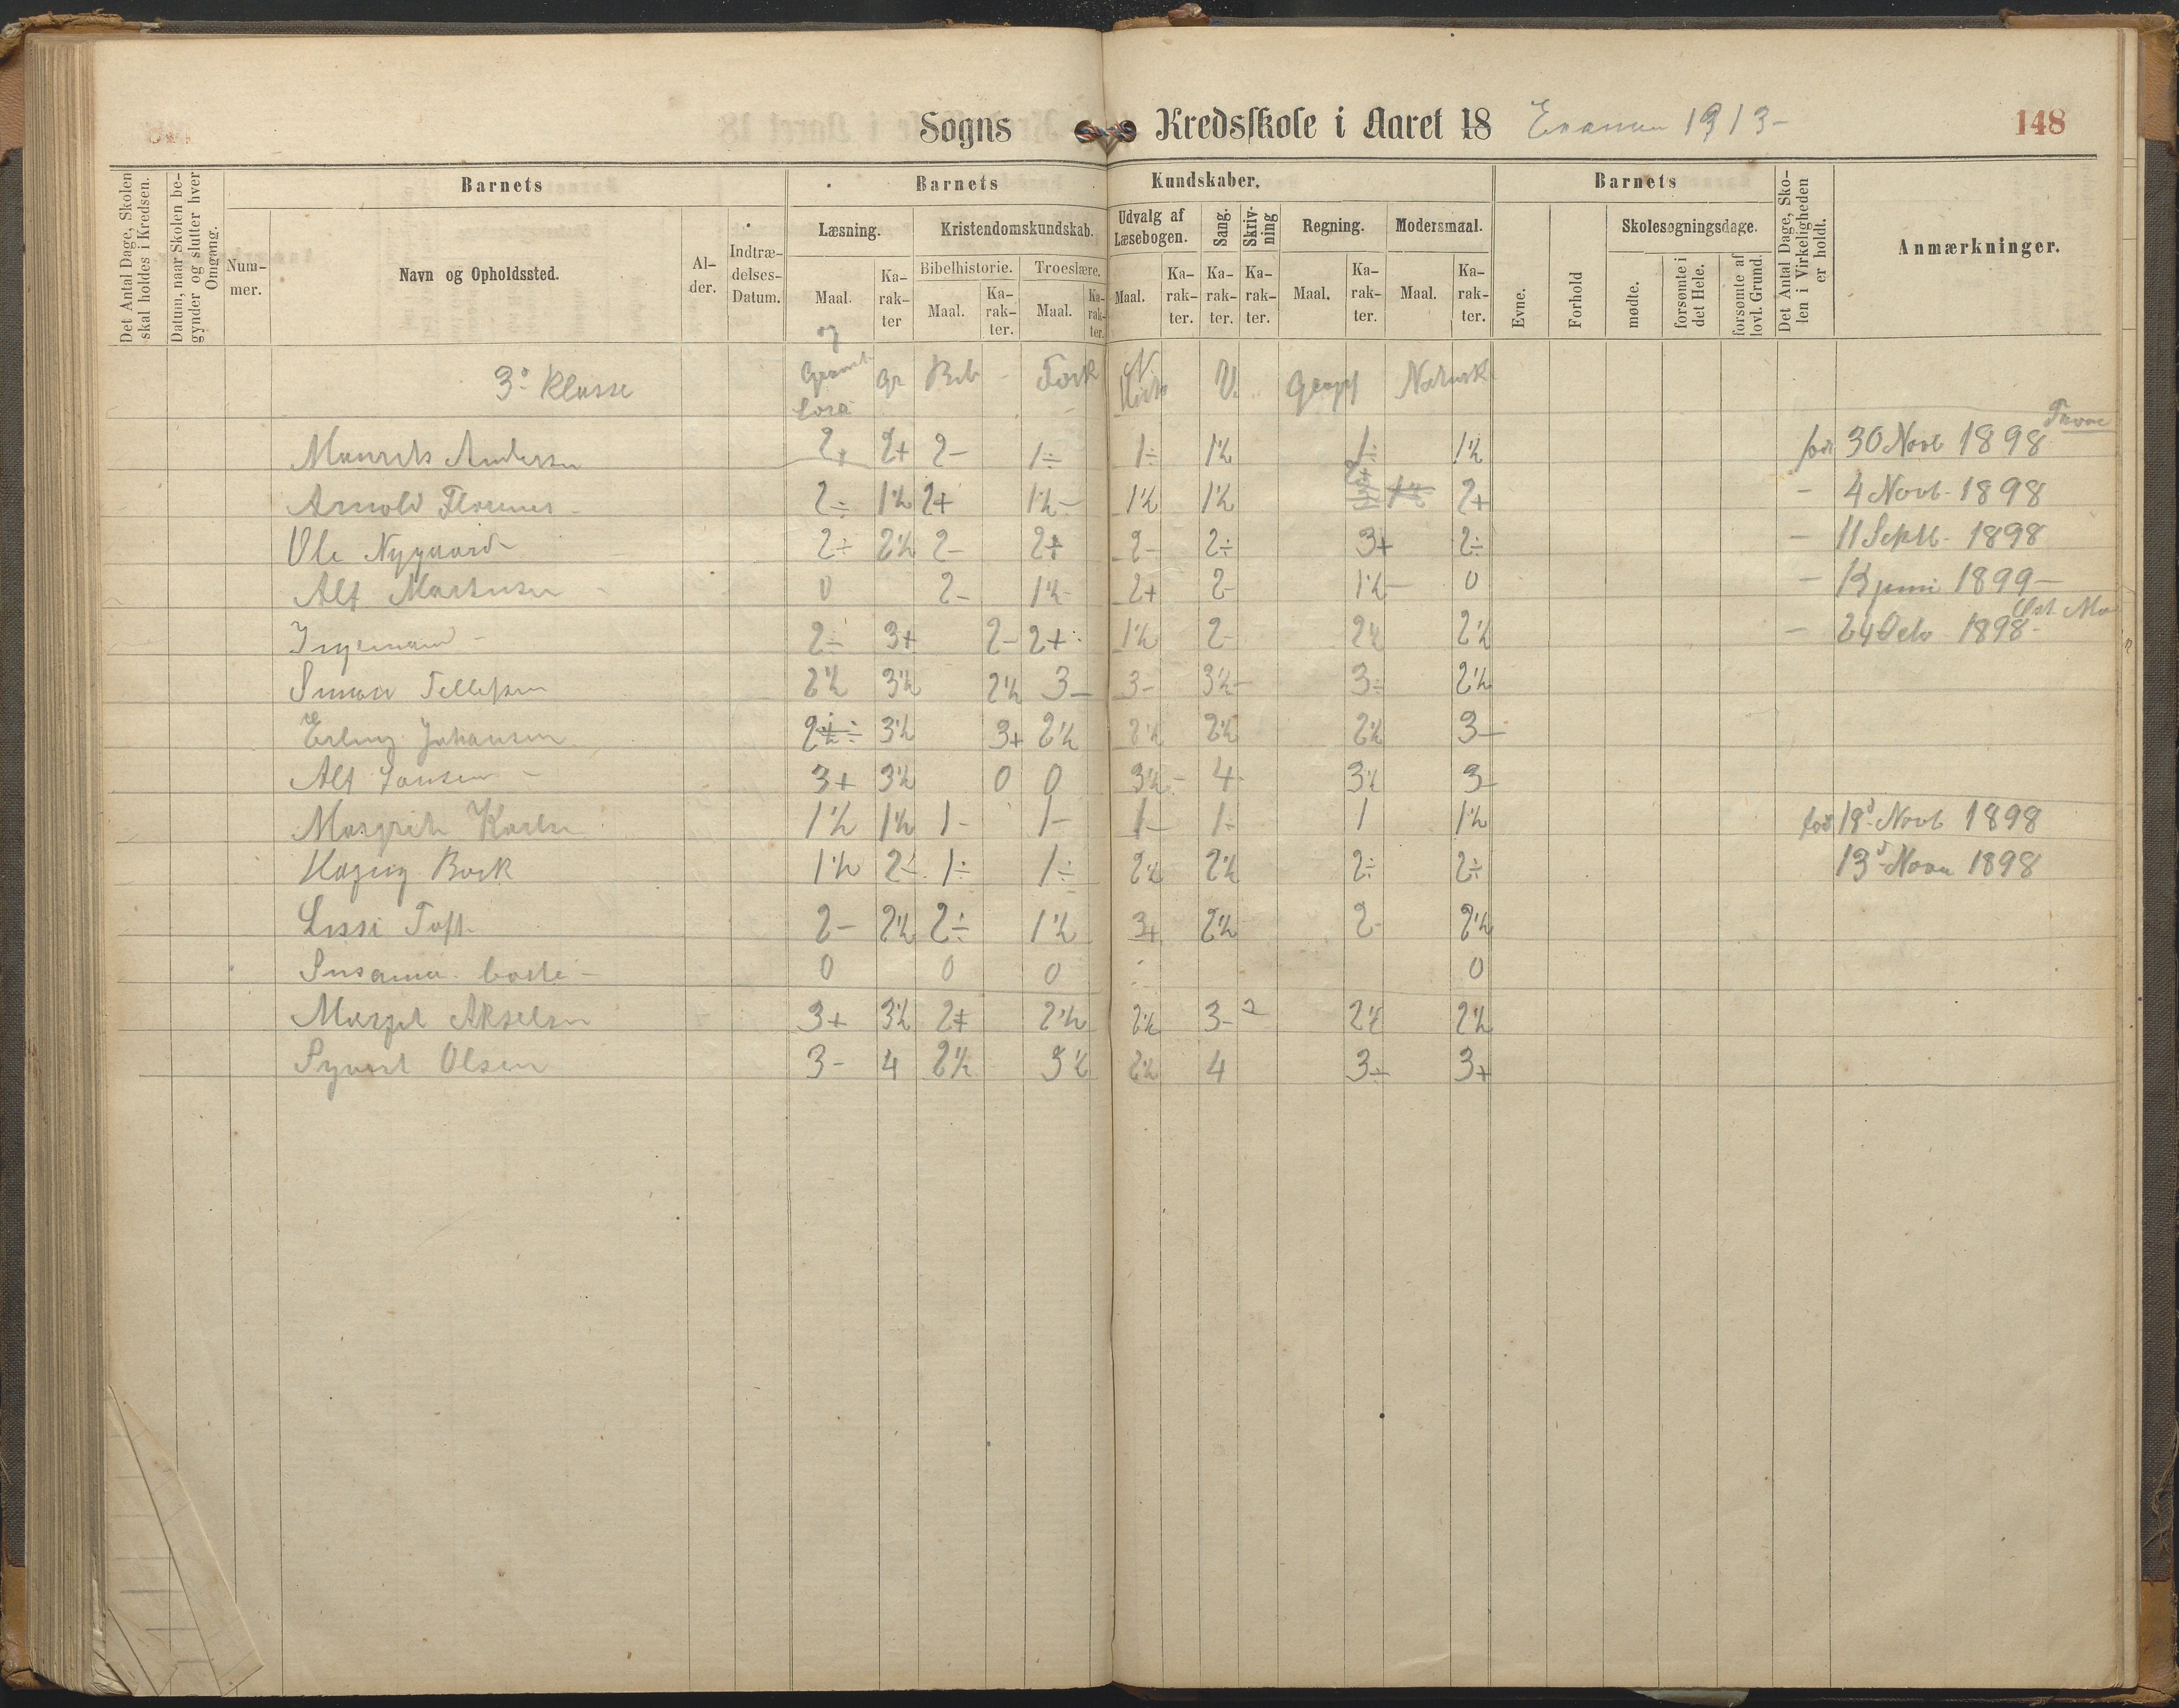 Sogns Kredsskole i Aaret 18 Examen 1913- 148
Det Antal Dage, Skolen skal holdes i Kredsen.
Datum, naar Skolen begynder og slutter hver Omgang.
Barnets
Nummer.
Navn og Opholdssted.
Alder.
Indtrædelses-Datum.
Barnets Kundskaber.
Læsning.
Maal.
Karakter
Kristendomskundskab.
Bibelhistorie.
Maal.
Karakter.
Troeslære.
Maal.
Karakter.
Udvalg af Læsebogen.
Maal.
Karakter.
Sang.
Karakter.
Skrivning
Karakter.
Regning.
Maal.
Karakter.
Modersmaal.
Maal.
Karakter.
Barnets
Evne.
Forhold
Skolesøgningsdage.
mødte.
forsømte i det Hele.
forsømte af lovl. Grund.
Det Antal Dage, Skolen i Virkeligheden er holdt.
Anmærkninger.
3. Klasse og Gr Bib - Fork Hist V. Geogr Naturk
Maurits Andersen 2+ 2+ 2- 1÷ 1÷ 1½ 1÷ 1½ født 30 Novb 1898
Arnold 2÷ 1½ 2+ 1½- 1½ 1½ 2+ 1½ 2+ - 4 Novb- 1898
Ole Nygaard 2÷ 2½ 2- 2+ 2- 2÷ 3+ 2÷ - 11 Septb- 1898
Alf Martinsen 0 2- 1½- 2+ 2- 1½- 0 - 13 juni 1899-
Ingemann - 2- 3+ 2- 2+ 1½ 2- 2½ 2½ - 24 Octo 1898-
Simon Tellefsen 2½ 3½ 2½ 3- 3- 3½- 3÷ 2½
Erling Johansen 2÷ 3½ 3+ 2½ 2½ 2½ 2½ 3-
Alf Jansen - 3+ 3½ 0 0 3½- 4- 3½ 3-
Margrit Karlsen 1½ 1½ 1- 1- 1- 1÷ 1 1½ født 19d Novb 1898
Bork 1½ 2÷ 1÷ 1÷ 2½ 2½ 2÷ 2÷ 13d Nov 1898
Lissi Toft 2- 2½ 2÷ 1½ 3+ 2½ 2- 2½
Susanna 0 0 0 0
Margit Akselsen 3+ 3½ 2+ 2½ 2½ 3- 2½ 2½
Syvert Olsen 3- 4 2½ 3½ 2½ 4 3+ 3+